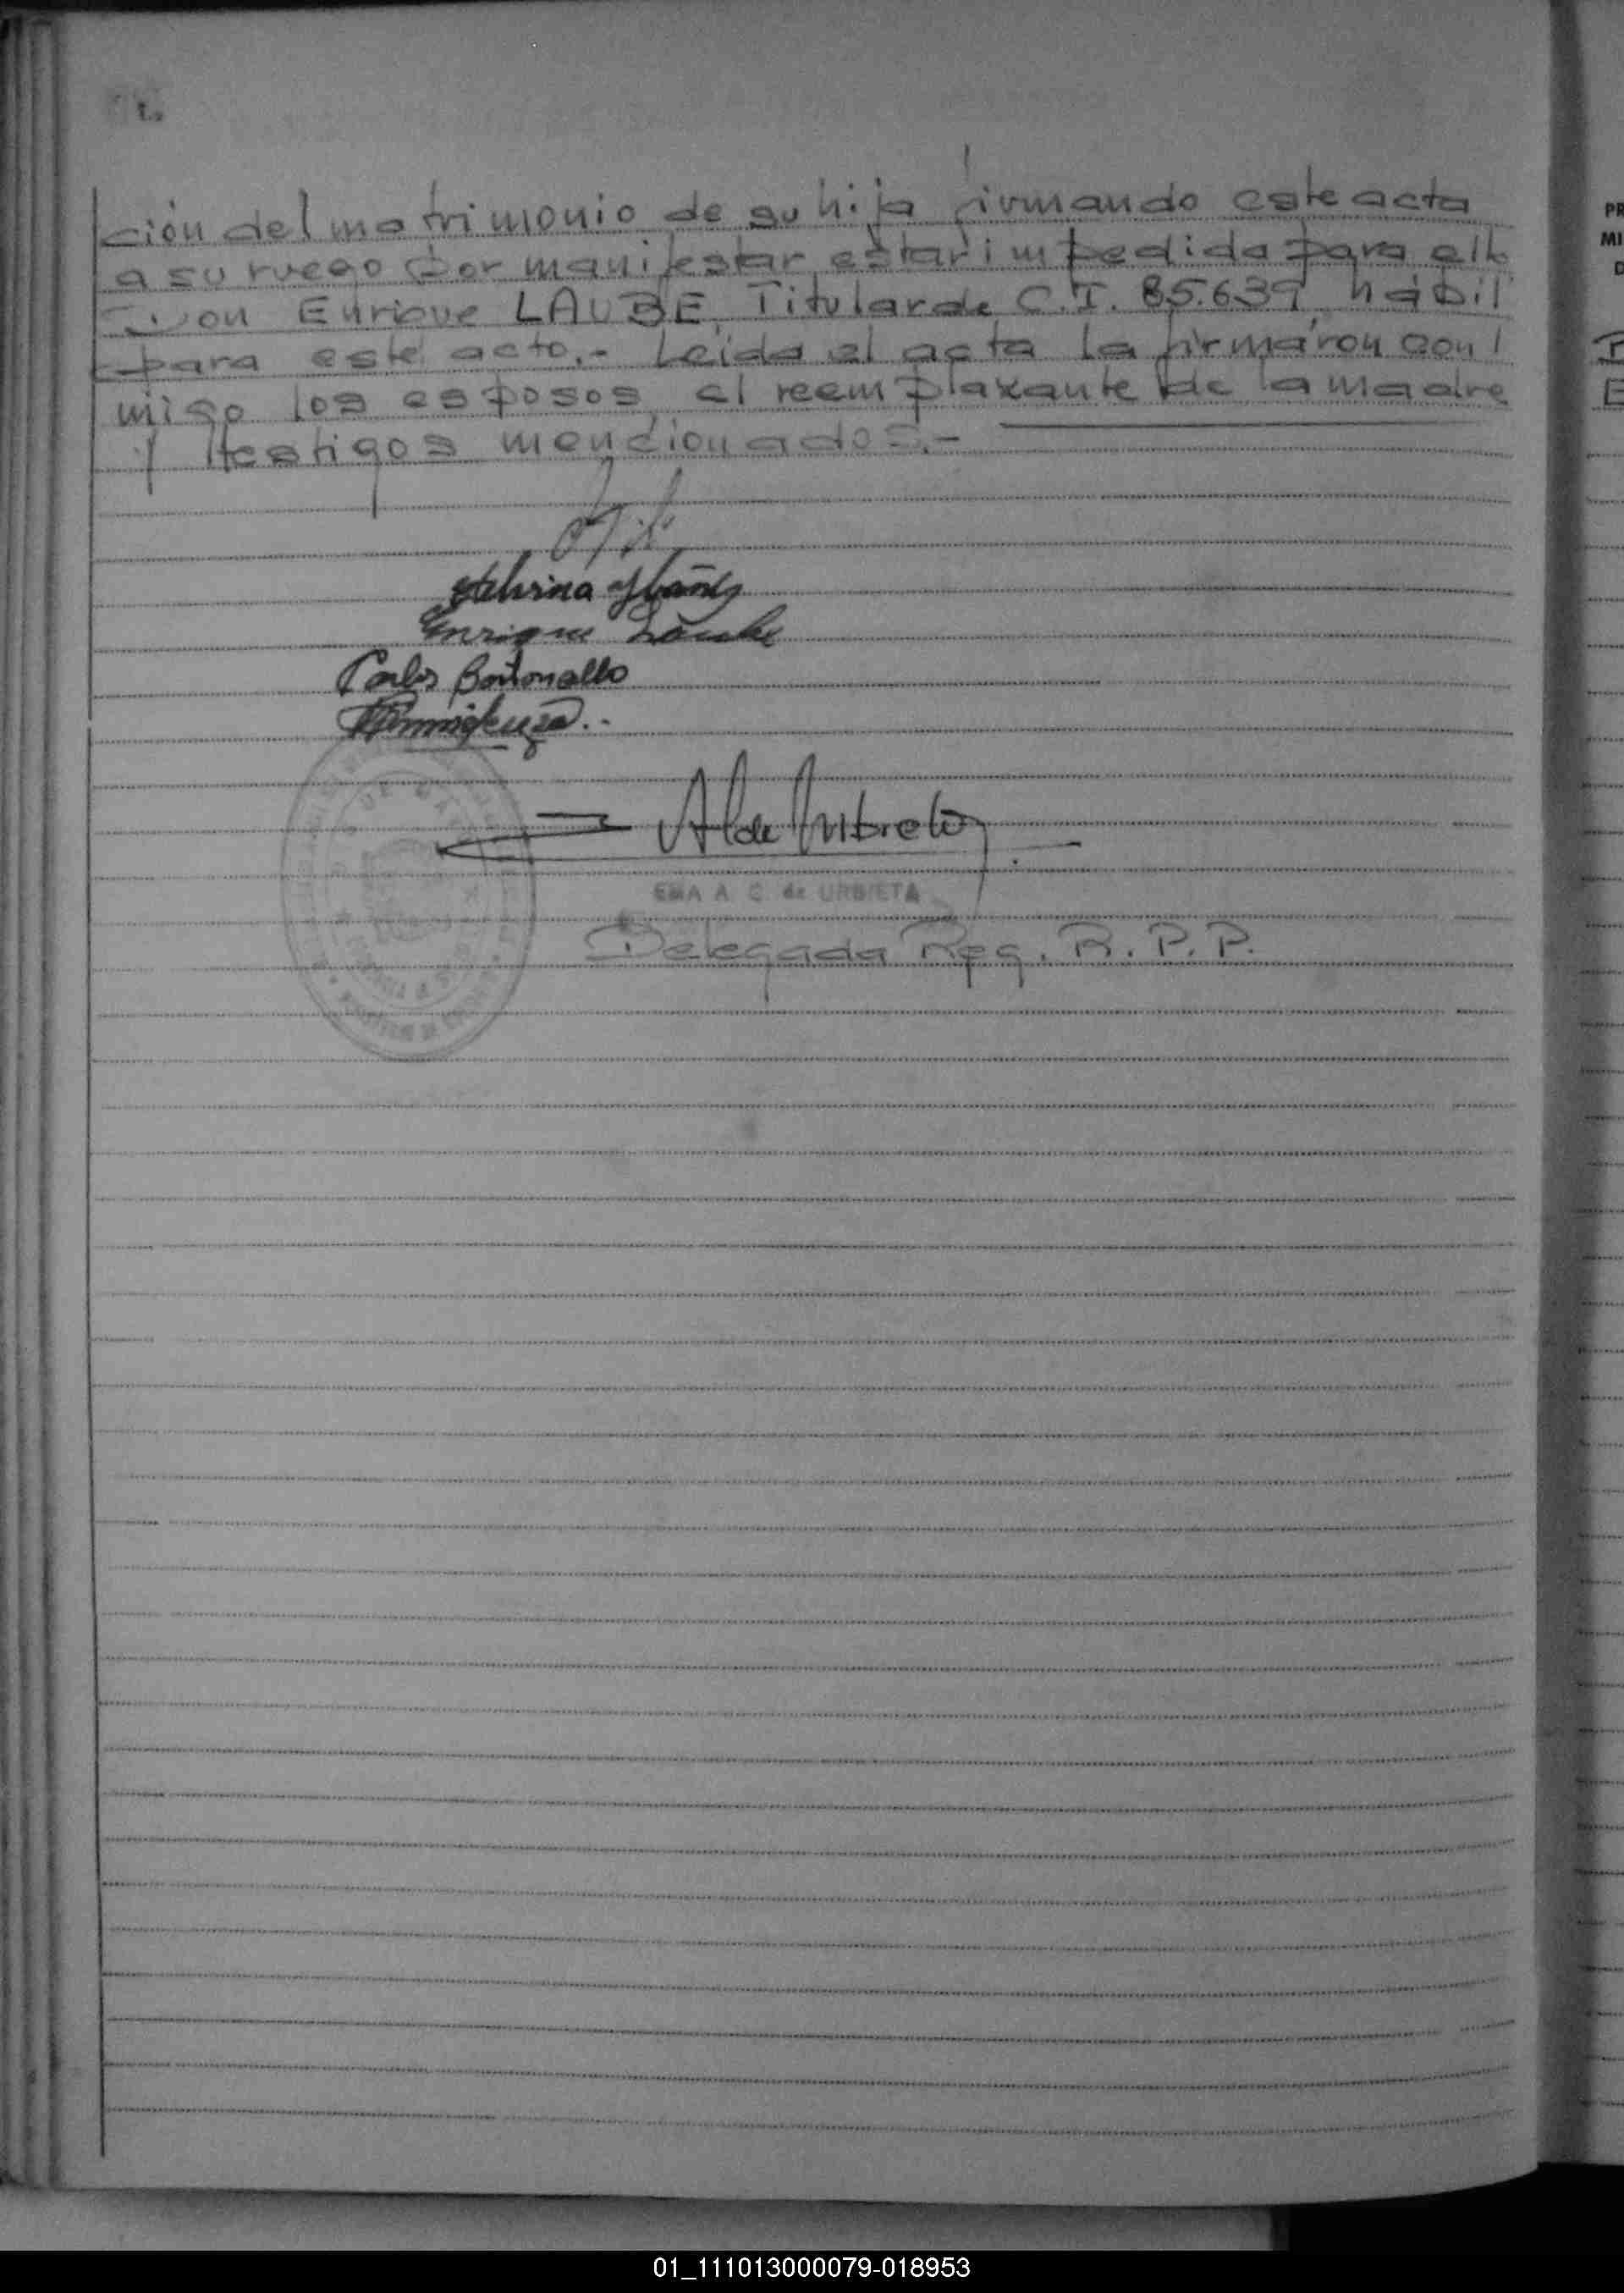 ción del matrimonio de su hija firmando este acta
a su ruego por manifestar estar impedida para ello
Don Enrique LAUBE, Titular de C.I. 85.639, hábil
para este acto.- Leída el acta la firmaron con-
migo los esposos, el reemplazante de la madre
y testigos mencionados.-
Ybañez
Enrique Laube
Carlos
EMA A. C. de URBIETA
Delegada Reg. R.P.P.
PR
MI
D
01_111013000079-018953